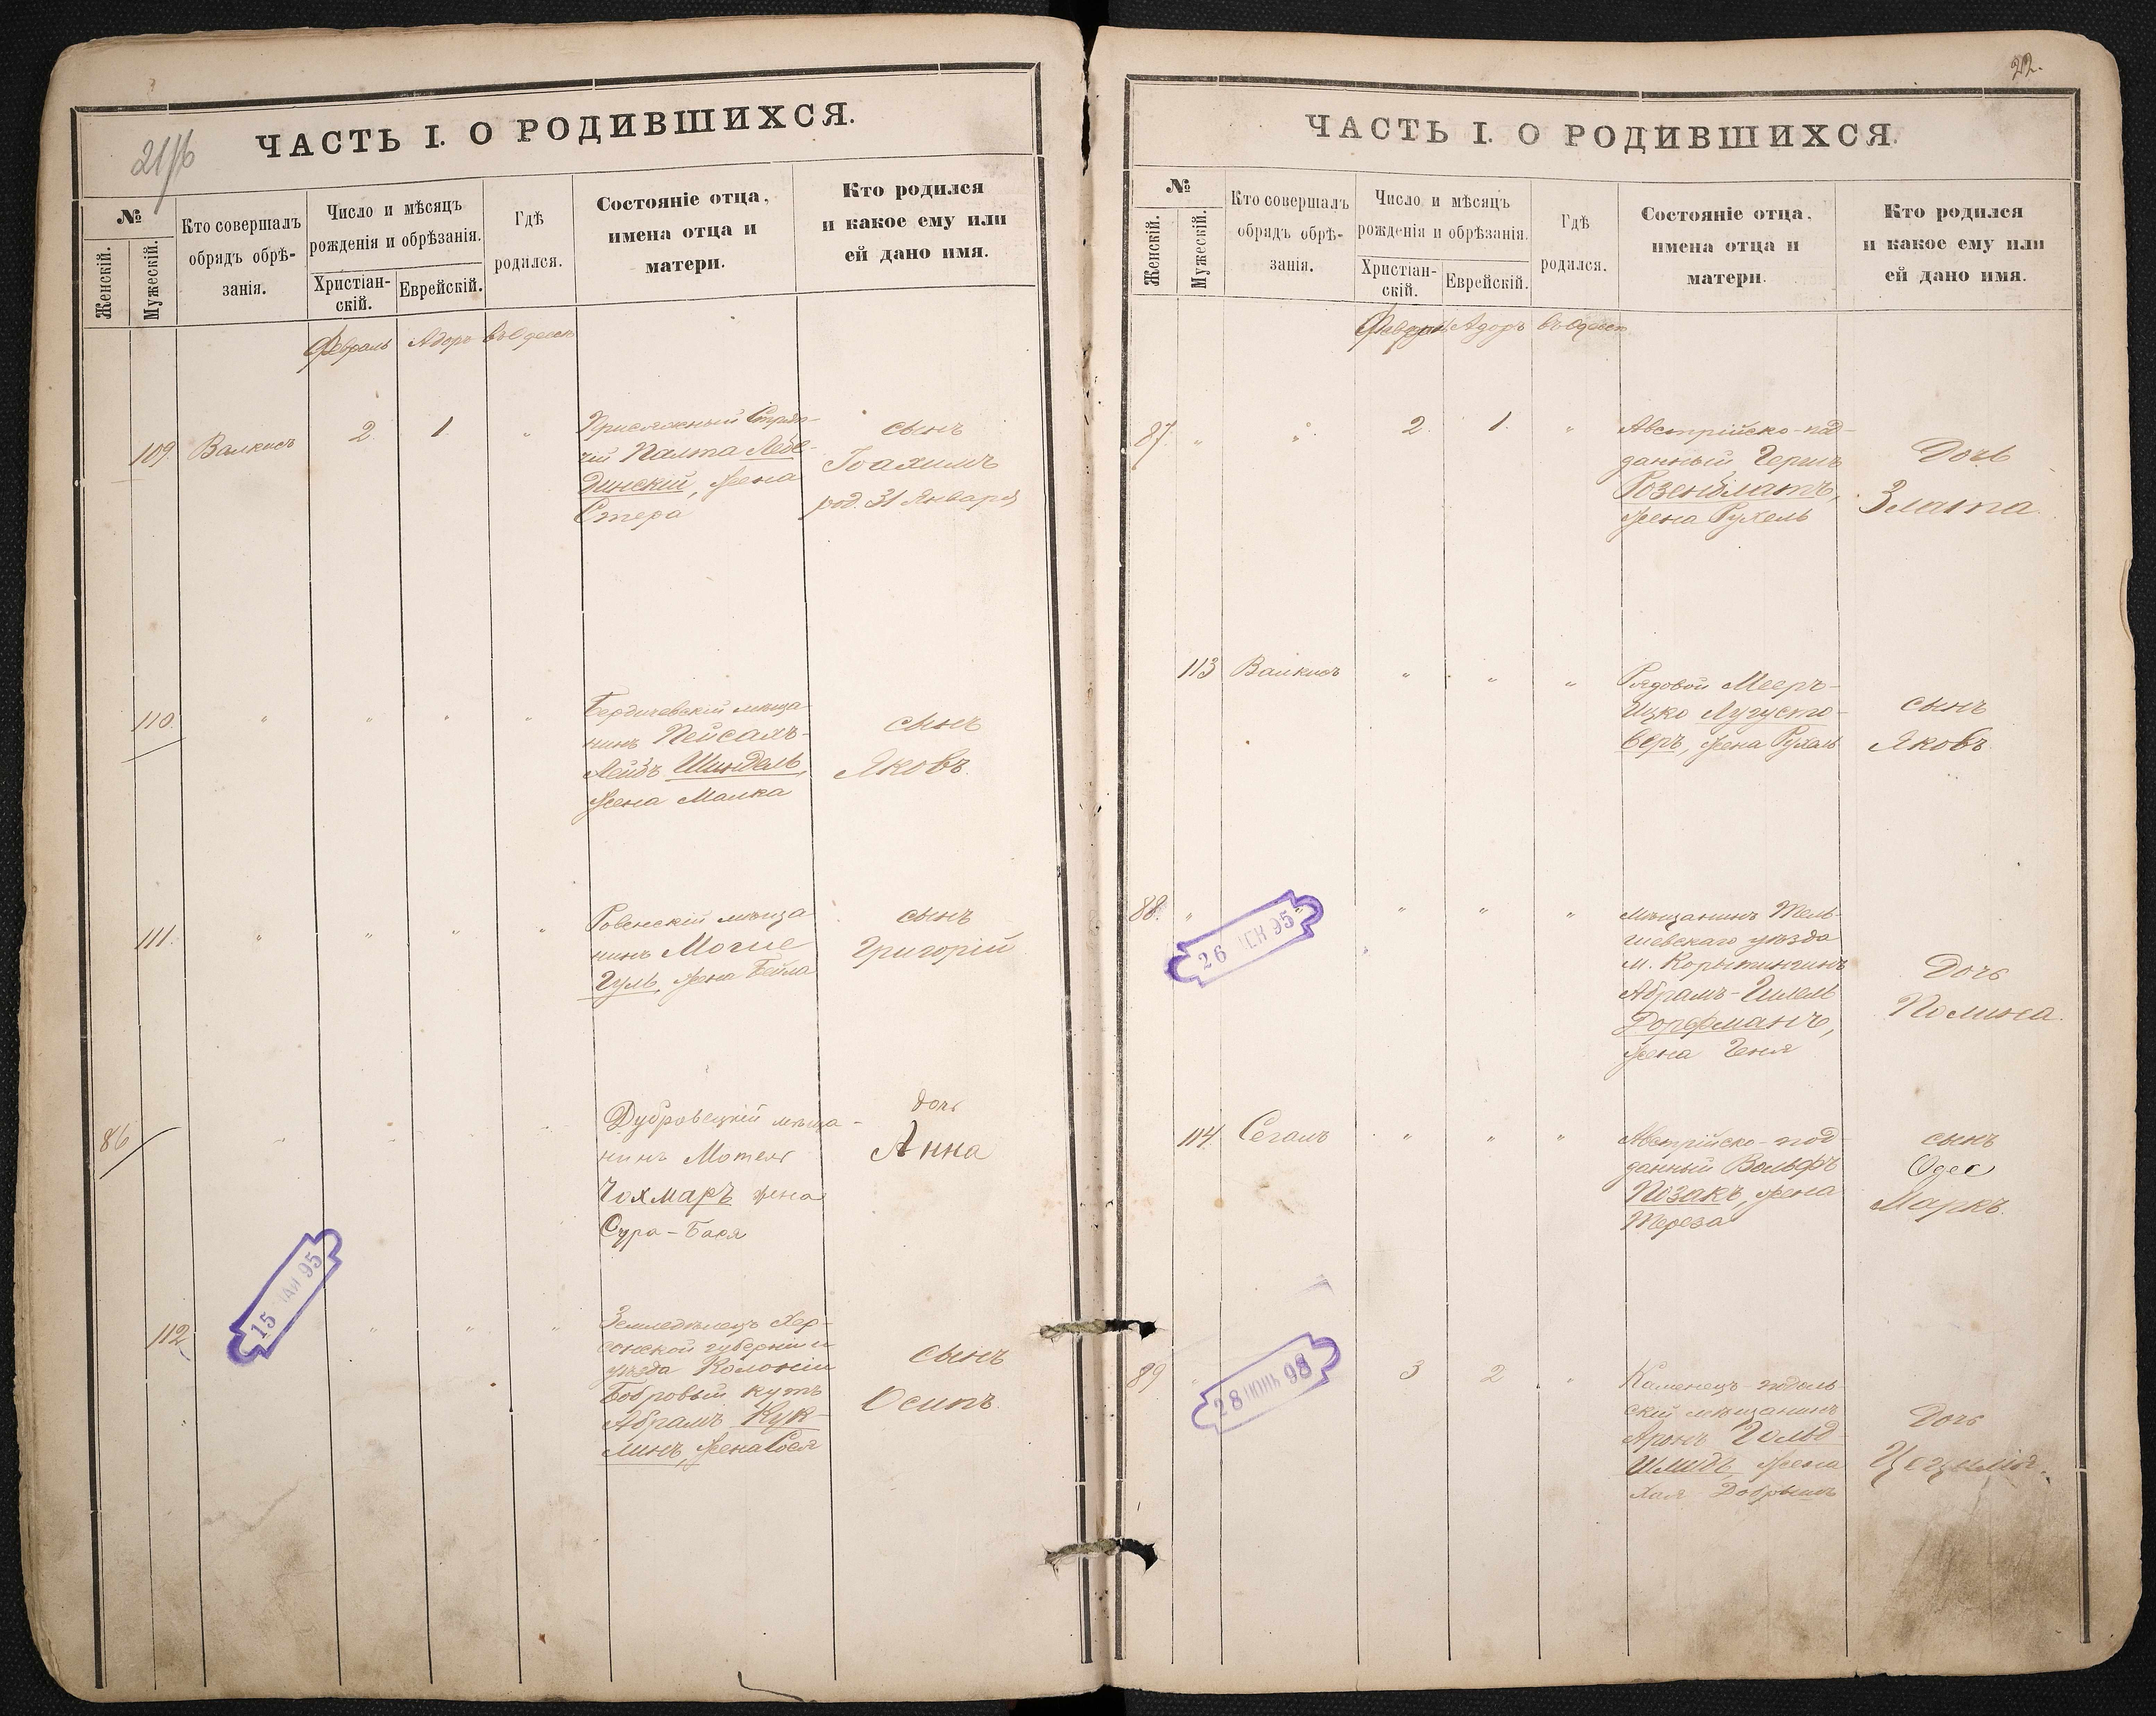 21/б
ЧАСТЬ I. О РОДИВШИХСЯ.
№
Женскій.
Мужескій.
Кто совершалъ
обрядъ обрѣ-
занія.
Число и мѣсяцъ
рожденія и обрѣзанія.
Христіан-
скій.
Еврейскій.
Гдѣ
родился.
Состояніе отца,
имена отца и
матери.
Кто родился
и какое ему или
ей дано имя.
Февраль Адоръ въ Одессѣ
109. Валкисъ 2. 1 "
Присяжный Стряп-
чій Палта Лебе-
динскій, жена
Стера
сынъ
Іоахимъ
род. 31 Января
110. " " " "
Бердичевскій мѣща-
нинъ Пейсахъ-
Лейбъ Шиндель,
жена Малка
сынъ
Яковъ.
111. " " " "
Ровенскій мѣща-
нинъ
Гуль, жена Бейла
сынъ
Григорій
86
Дубровецкій мѣща-
нинъ Мотель
Чохмаръ жена
Сура-Бася
дочь
Анна
15 МАЙ 95
112 " " "
Земледѣлецъ Хер-
сонской губерніи и
уѣзда Колоніи
Бобровый кутъ
Абрамъ Кук-
линъ, жена Сося
сынъ
Осипъ.
22.
ЧАСТЬ I. О РОДИВШИХСЯ.
№
Женскій.
Мужескій.
Кто совершалъ
обрядъ обрѣ-
занія.
Число и мѣсяцъ
рожденія и обрѣзанія.
Христіан-
скій.
Еврейскій.
Гдѣ
родился.
Состояніе отца,
имена отца и
матери.
Кто родился
и какое ему или
ей дано имя.
Февраль Адоръ въ Одессѣ
87. " " 2. 1. "
Австрійско-под-
данный Гершъ
Розенблатъ,
жена Рухель
Дочь
Злата.
113 Валкисъ " " "
Рядовой Мееръ-
Ицко Лугусто-
беръ, жена Рухль
сынъ
Яковъ
88. " " " "
26 ДЕК 95
Мѣщанинъ Тель-
шевскаго уѣзда
м.
Абрамъ-Гилель
Дорфманъ,
жена Геня
Дочь
Полина.
114. Сегалъ " " "
Австрійско-под-
данный Вольфъ
Позакъ, жена
Тереза
сынъ
Одес
Маркъ.
89 " 3 2 "
28 ІЮНЬ 98
Каменецъ-подоль-
скій мѣщанинъ
Аронъ Гольд-
шмидъ, жена
Хая Добрышъ
Дочь
Цецилія.